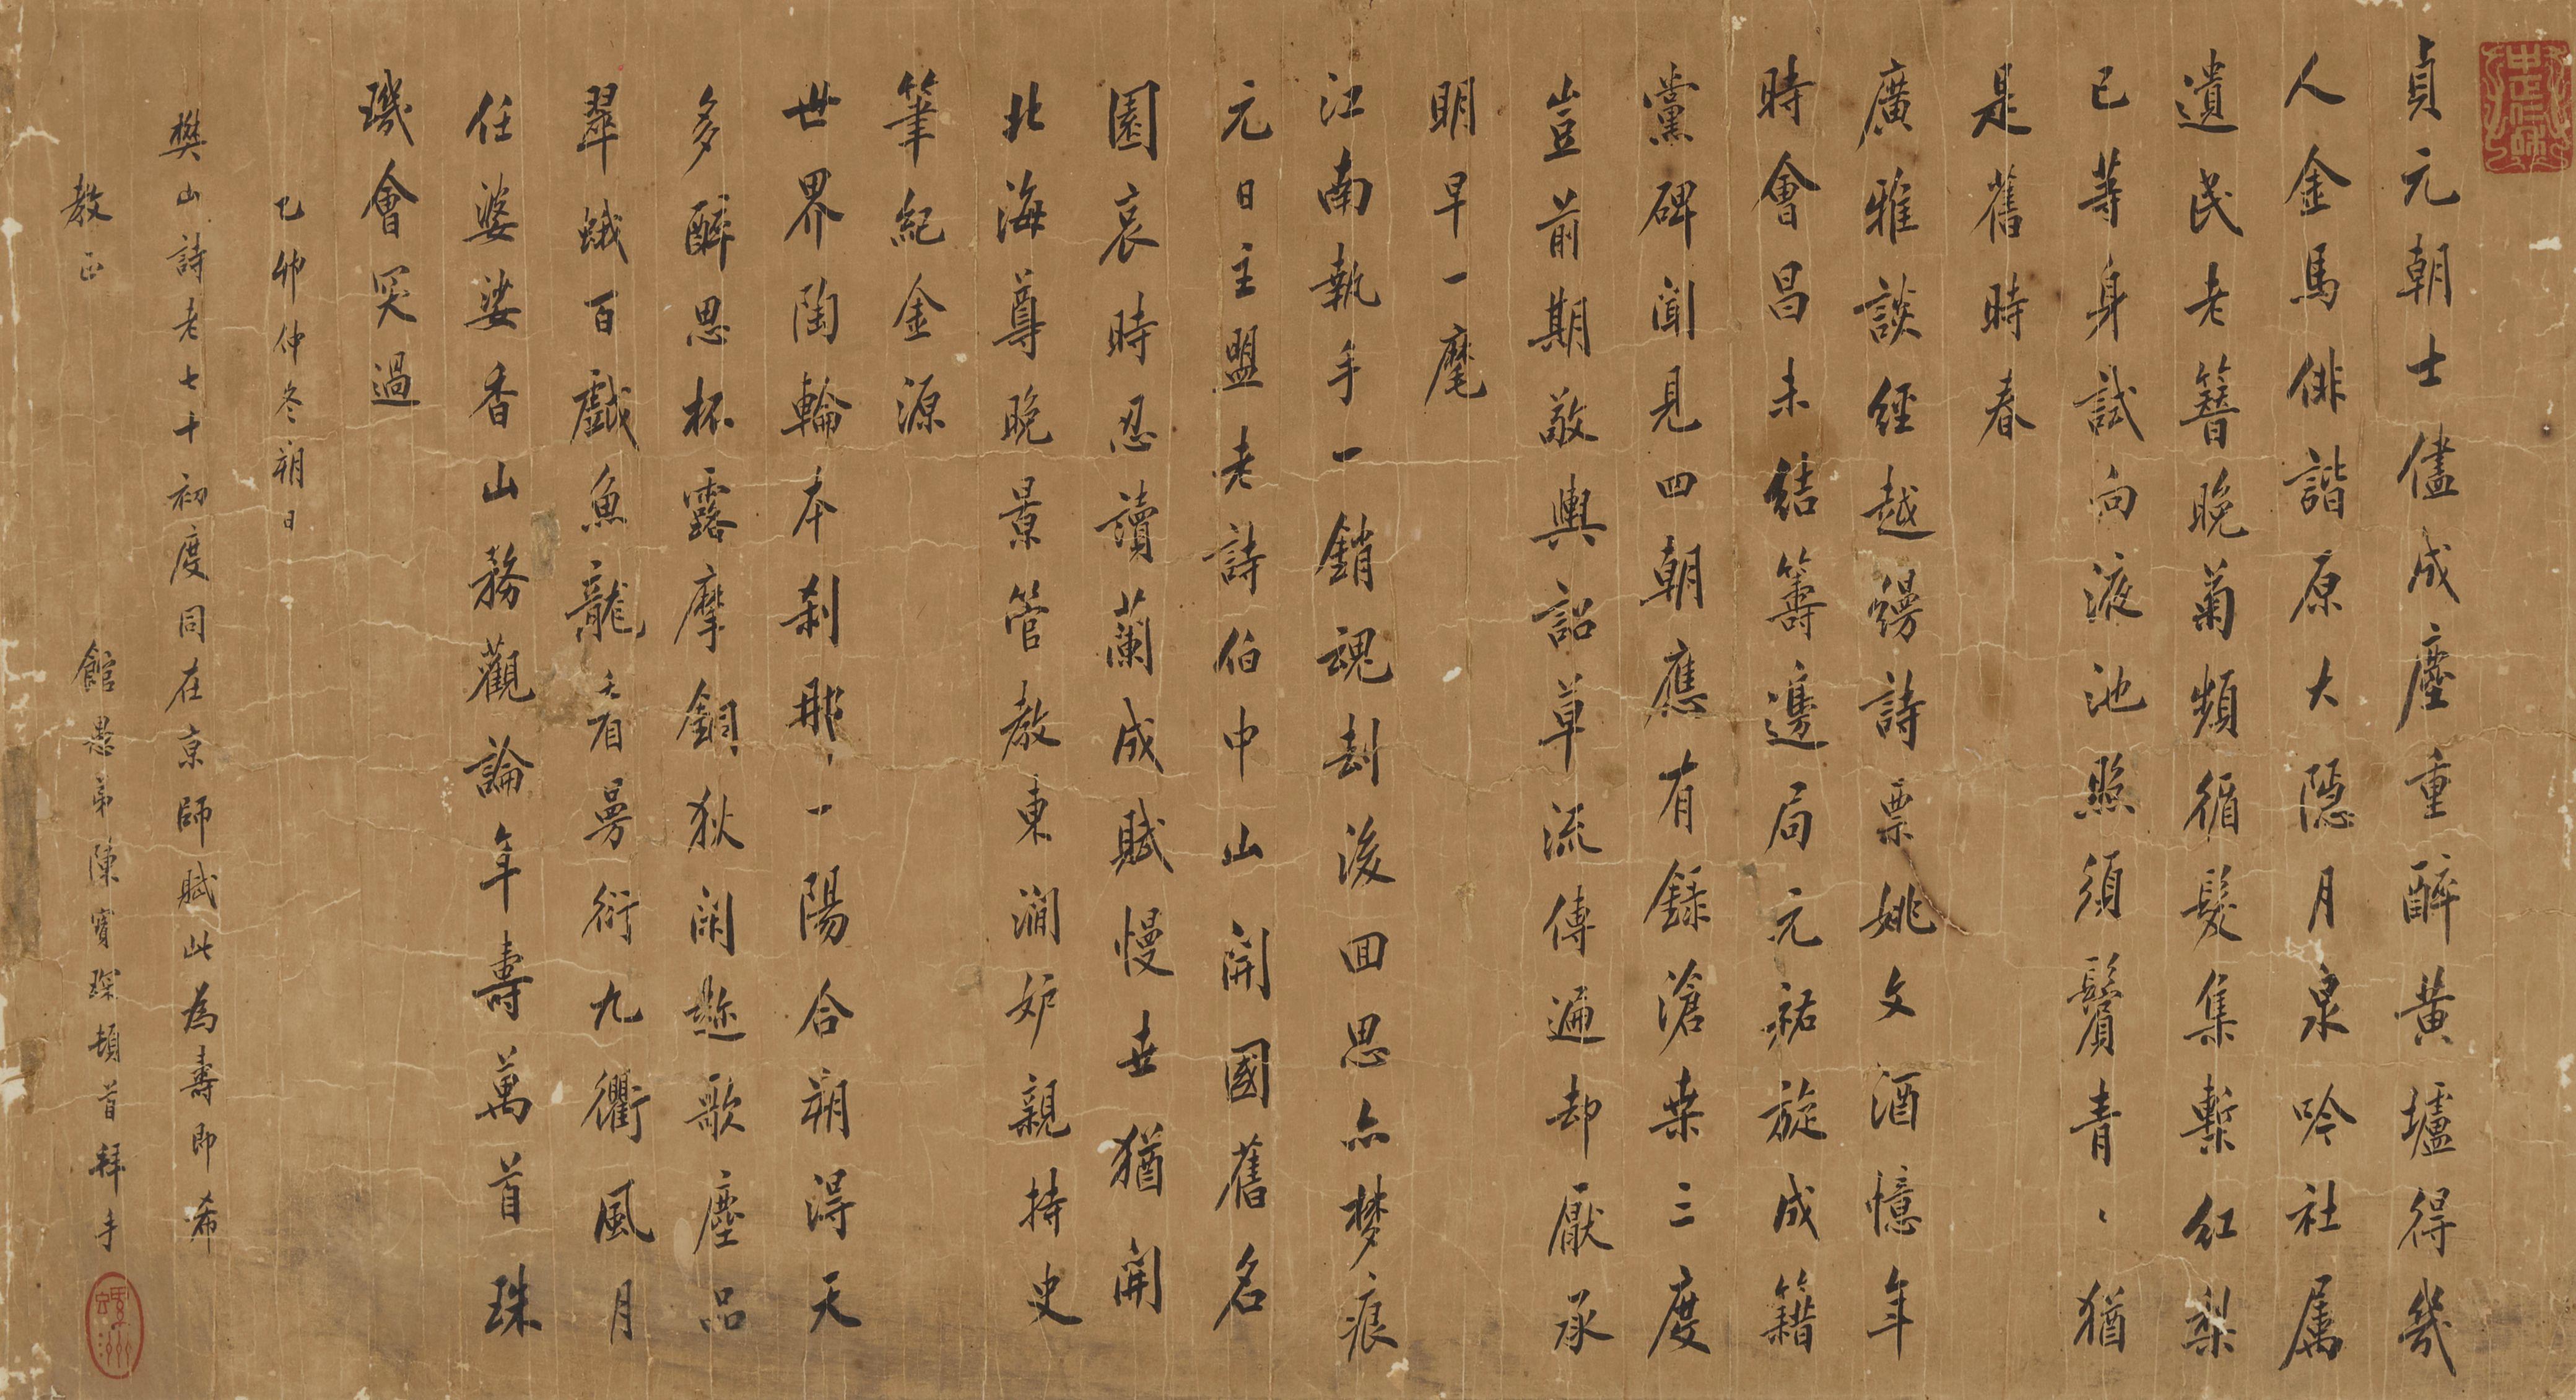 貞元朝士儘成塵重醉黃壚得幾
人金馬俳諧原大隱月泉吟社屬
遺民老簪晚菊頻循髮集槧紅梨
已等身試向液池照須鬢青〻猶
是舊時春
廣雅談經越縵詩票姚文酒憶年
時會昌未結籌邊局元祐旋成籍
黨碑聞見四朝應有錄滄桑三度
豈前期敬輿詔草流傳遍却厭承
明早一麾
江南執手一銷魂劫後回思亦夢痕
元日主盟老詩伯中山開國舊名
園哀時忍讀蘭成賦慢世猶開
北海尊晚景管教東澗妒親持史
筆紀金源
世界陶輪本刹那一陽合朔得天
多醉思杯露摩銅狄鬧趁歌塵品
翠蛾百戲魚龍看曼衍九衢風月
任婆娑香山務觀論年壽萬首珠
璣會突過
乙卯仲冬朔日
樊山詩老七十初度同在京師賦此為壽即希
教正
館愚弟陳寶琛頓首拜手